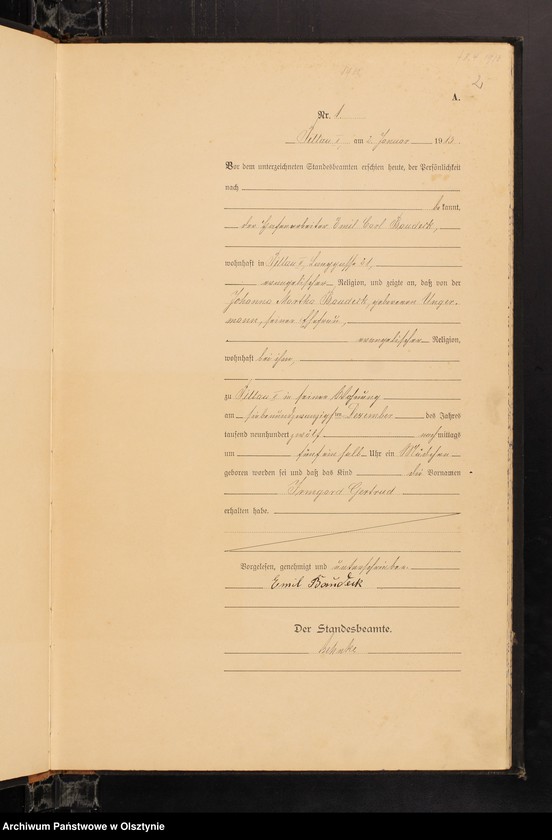 2
A.
Nr. 1
Pillau I, am 2. Januar 1913.
Vor dem unterzeichneten Standesbeamten erschien heute, der Persönlichkeit
nach
be kannt,
der Hafenarbeiter Emil Carl Baudeck,
wohnhaft in Pillau I, Langgasse 21,
evangelischer Religion, und zeigte an, daß von der
Johanna Martha Baudeck, geborenen Unger-
mann, seiner Ehefrau,
evangelischer Religion,
wohnhaft bei ihm,
zu Pillau I in seiner Wohnung
am siebenundzwanzigsten Dezember des Jahres
tausend neunhundert zwölf nachmittags
um fünf ein halb Uhr ein Mädchen
geboren worden sei und daß das Kind die Vornamen
Irmgard Gertrud
erhalten habe.
Vorgelesen, genehmigt und unterschrieben
Emil Baudeck
Der Standesbeamte.
Archiwum Państwowe w Olsztynie